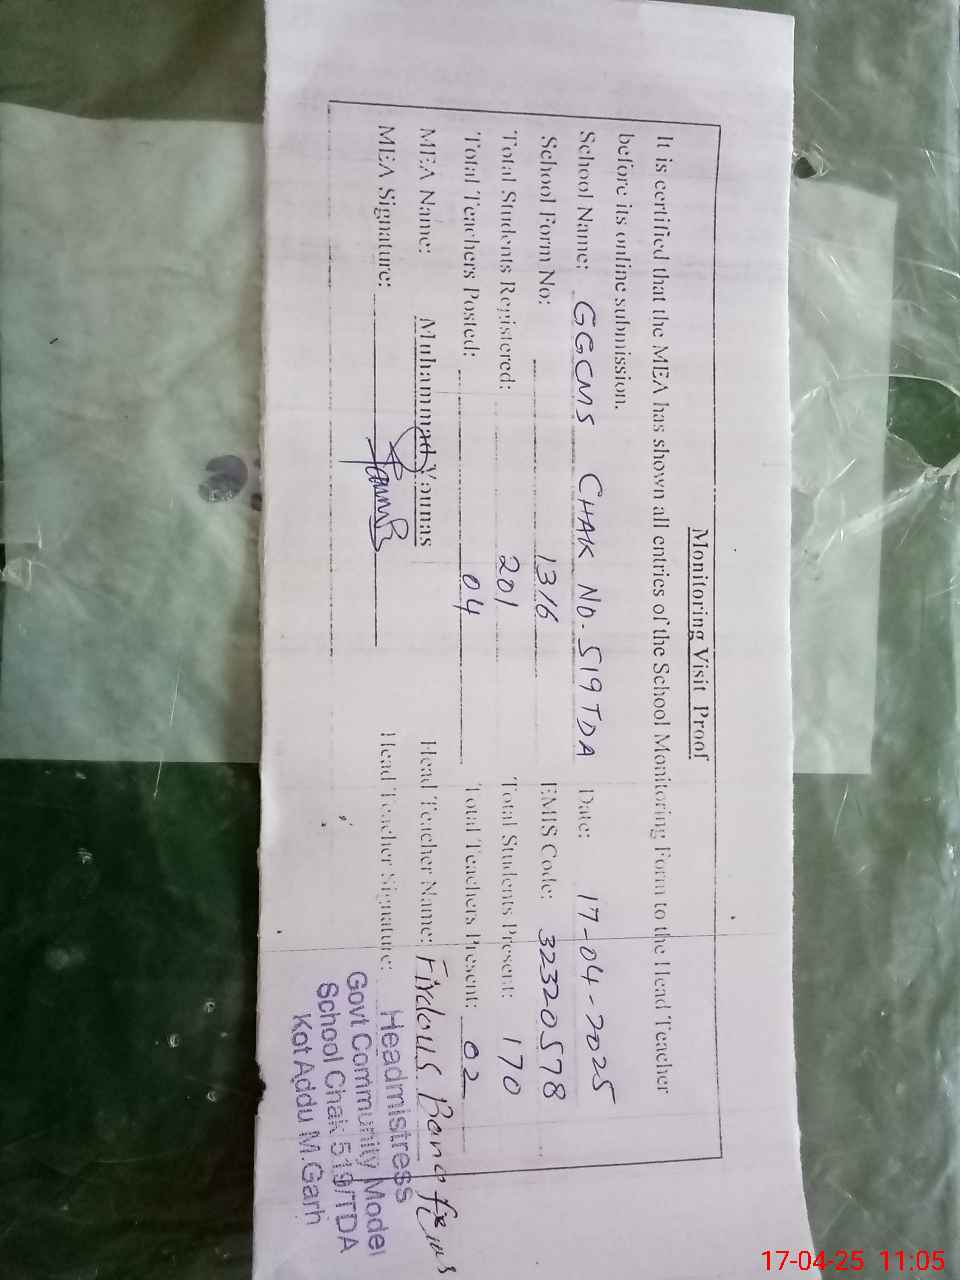 Monitoring Visit Proof
It is certified that the MEA has shown all entries of the School Monitoring Form to the Head Teacher
before its online submission.
School Name: GGCMS CHAK NO. 519 TDA Date: 17-04-2025
School Form No: 1316 EMIS Code: 32320578
Total Students Registered: 201 Total Students Present: 170
Total Teachers Posted: 04 Total Teachers Present: 02
MEA Name: Muhammad Younas Head Teacher Name: Firdous Bano
MEA Signature: Head Teacher Signature:
Headmistress
Govt Community Model
School Chak 519/TDA
Kot Addu M.Garh
17-04-25 11:05